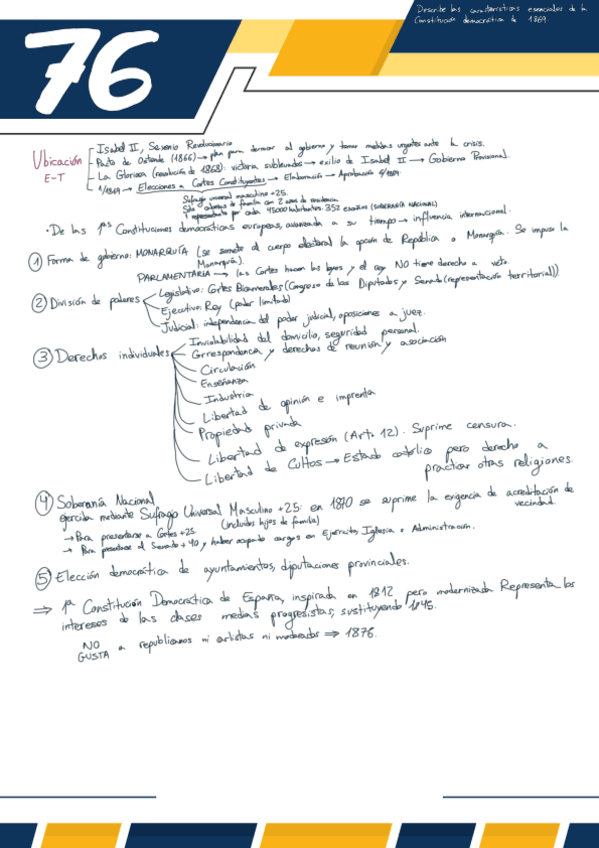 Describe las características esenciales de la
Constitución democrática de 1869.
76
Ubicación
E-T
Isabel II, Sexenio Revolucionario
Pacto de Ostende (1866) → plan para derrocar al gobierno y tomar medidas urgentes ante la crisis.
La Gloriosa (revolución de 1868): victoria sublevados → exilio de Isabel II → Gobierno Provisional.
1/1869 → Elecciones a Cortes Constituyentes → Elaboración → Aprobación 6/1869.
Sufragio universal masculino +25.
Sólo cabezas de familia con 2 años de residencia.
1 representante por cada 45000 habitantes: 352 escaños (SOBERANÍA NACIONAL)
· De las 1ªs Constituciones democráticas europeas, avanzada a su tiempo → influencia internacional.
① Forma de gobierno: MONARQUÍA (se somete al cuerpo electoral la opción de República o Monarquía. Se impuso la
Monarquía).
PARLAMENTARIA → las Cortes hacen las leyes y el rey NO tiene derecho a veto.
② División de poderes
Legislativo: Cortes Bicamerales (Congreso de los Diputados y Senado (representación territorial))
Ejecutivo: Rey (poder limitado)
Judicial: independencia del poder judicial, oposiciones a juez.
③ Derechos individuales
Inviolabilidad del domicilio, seguridad personal.
Correspondencia y derechos de reunión y asociación
Circulación
Enseñanza
Industria
Libertad de opinión e imprenta
Propiedad privada
Libertad de expresión (Art. 12). Suprime censura.
Libertad de Cultos → Estado católico pero derecho a
practicar otras religiones.
④ Soberanía Nacional
ejercida mediante Sufragio Universal Masculino +25: en 1870 se suprime la exigencia de acreditación de
vecindad.
(incluidos hijos de familia)
→ Para presentarse a Cortes +25.
→ Para presentarse al Senado +40, y haber ocupado cargos en Ejército, Iglesia o Administración.
⑤ Elección democrática de ayuntamientos, diputaciones provinciales.
⇒ 1ª Constitución Democrática de España, inspirada en 1812 pero modernizada. Representa los
intereses de las clases medias progresistas, sustituyendo 1845.
NO
GUSTA a republicanos ni carlistas ni moderados ⇒ 1876.